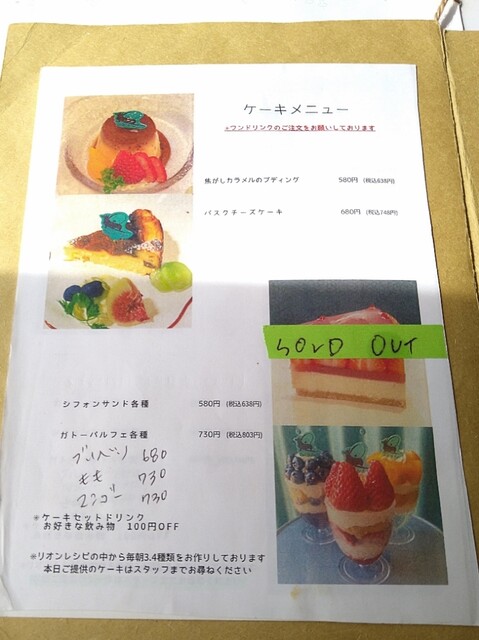 ケーキメニュー
*ワンドリンクのご注文をお願いしております
焦がしカラメルのプディング 580円 (税込638円)
バスクチーズケーキ 680円 (税込748円)
SOLD OUT
シフォンサンド各種 580円 (税込638円)
ガトーパルフェ各種 730円 (税込803円)
ブルーベリー 680
もも 730
マンゴー 730
*ケーキセットドリンク
お好きな飲み物 100円OFF
*リオンレシピの中から毎朝3.4種類をお作りしております
本日ご提供のケーキはスタッフまでお尋ねください